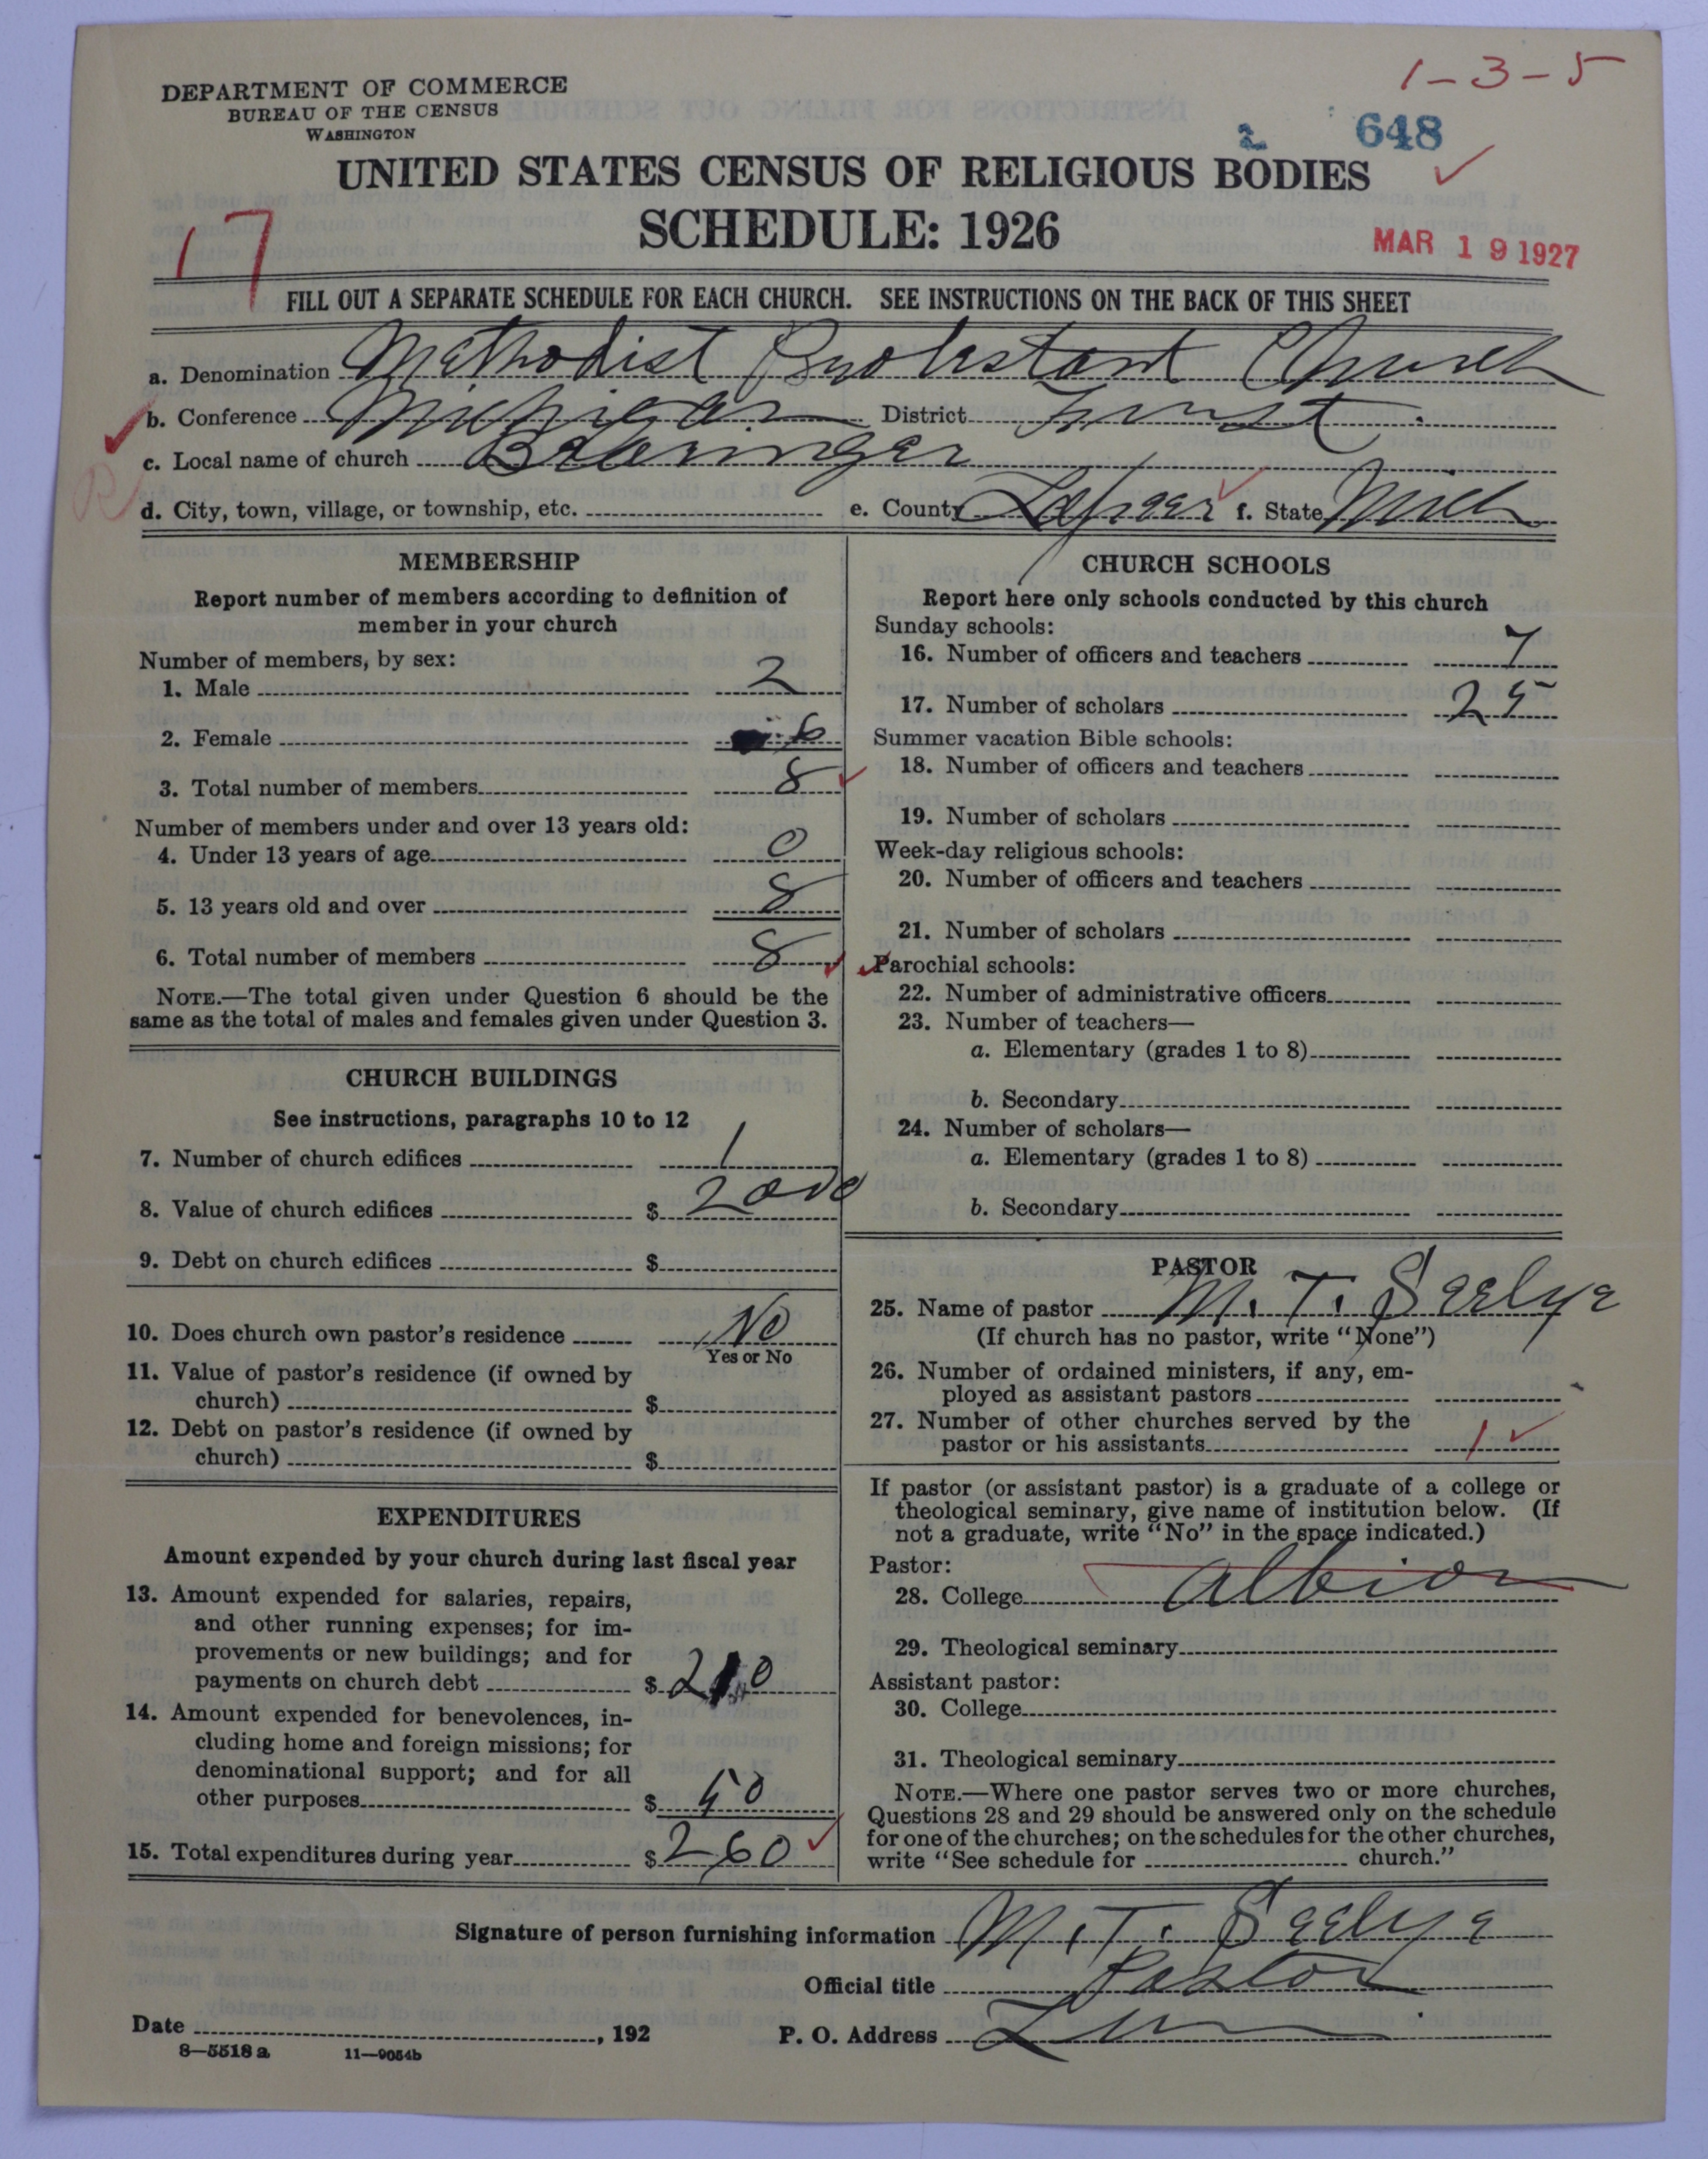 1-3-5
DEPARTMENT OF COMMERCE
BUREAU OF THE CENSUS
WASHINGTON
2 648
UNITED STATES CENSUS OF RELIGIOUS BODIES
SCHEDULE: 1926
17
MAR 19 1927
FILL OUT A SEPARATE SCHEDULE FOR EACH CHURCH. SEE INSTRUCTIONS ON THE BACK OF THIS SHEET
a. Denomination Methodist Protestant Church
b. Conference Michigan District
c. Local name of church
d. City, town, village, or township, etc. e. County Lapeer f. State Mich
MEMBERSHIP
Report number of members according to definition of
member in your church
Number of members, by sex:
1. Male 2
2. Female 6
3. Total number of members 8
Number of members under and over 13 years old:
4. Under 13 years of age 0
5. 13 years old and over 8
6. Total number of members 8
NOTE.—The total given under Question 6 should be the
same as the total of males and females given under Question 3.
CHURCH BUILDINGS
See instructions, paragraphs 10 to 12
7. Number of church edifices 1
8. Value of church edifices $ 2000
9. Debt on church edifices $
10. Does church own pastor's residence No
Yes or No
11. Value of pastor's residence (if owned by
church) $
12. Debt on pastor's residence (if owned by
church) $
EXPENDITURES
Amount expended by your church during last fiscal year
13. Amount expended for salaries, repairs,
and other running expenses; for im-
provements or new buildings; and for
payments on church debt $ 210
14. Amount expended for benevolences, in-
cluding home and foreign missions; for
denominational support; and for all
other purposes $ 50
15. Total expenditures during year $ 260
CHURCH SCHOOLS
Report here only schools conducted by this church
Sunday schools:
16. Number of officers and teachers 7
17. Number of scholars 25
Summer vacation Bible schools:
18. Number of officers and teachers
19. Number of scholars
Week-day religious schools:
20. Number of officers and teachers
21. Number of scholars
Parochial schools:
22. Number of administrative officers
23. Number of teachers—
a. Elementary (grades 1 to 8)
b. Secondary
24. Number of scholars—
a. Elementary (grades 1 to 8)
b. Secondary
PASTOR
25. Name of pastor M. T. Seelye
(If church has no pastor, write "None")
26. Number of ordained ministers, if any, em-
ployed as assistant pastors
27. Number of other churches served by the
pastor or his assistants 1
If pastor (or assistant pastor) is a graduate of a college or
theological seminary, give name of institution below. (If
not a graduate, write "No" in the space indicated.)
Pastor:
28. College Albion
29. Theological seminary
Assistant pastor:
30. College
31. Theological seminary
NOTE.—Where one pastor serves two or more churches,
Questions 28 and 29 should be answered only on the schedule
for one of the churches; on the schedules for the other churches,
write "See schedule for church."
Signature of person furnishing information M. T. Seelye
Official title Pastor
Date , 192 P. O. Address
8—5518 a 11—9054b